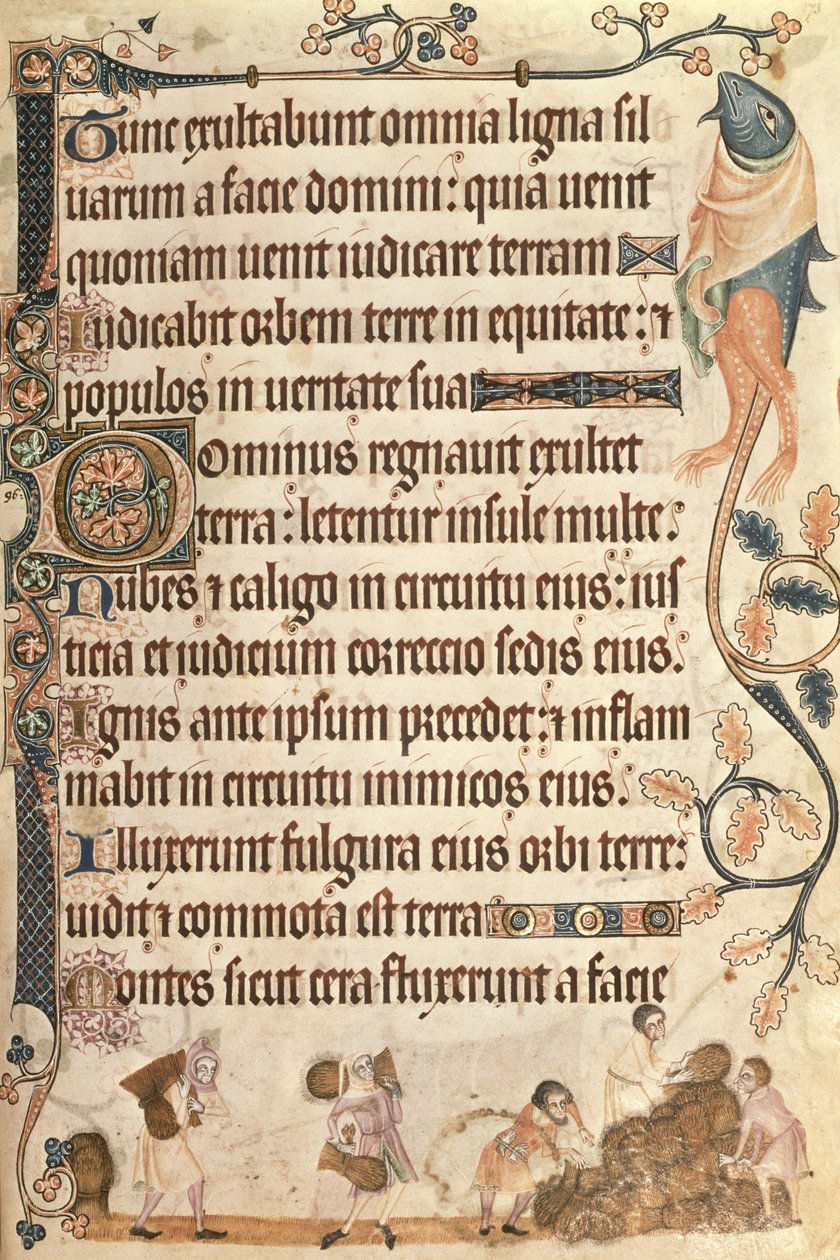 173
Tunc exultabunt omnia ligna sil
uarum a facie domini: quia uenit
quoniam uenit iudicare terram
Iudicabit orbem terre in equitate: ⁊
populos in ueritate sua
Dominus regnauit exultet
96:
terra: letentur insule multe.
Nubes ⁊ caligo in circuitu eius: ius
ticia et iudicium correccio sedis eius.
Ignis ante ipsum precedet: ⁊ inflam
mabit in circuitu inimicos eius.
Illuxerunt fulgura eius orbi terre:
uidit ⁊ commota est terra
Montes sicut cera fluxerunt a facie